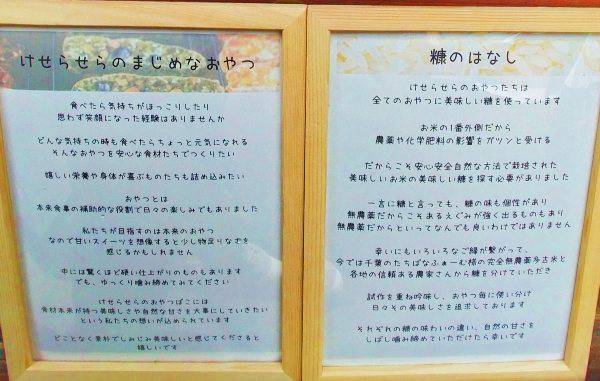 けせらせらのまじめなおやつ
食べたら気持ちがほっこりしたり
思わず笑顔になった経験はありませんか
どんな気持ちの時も食べたらちょっと元気になれる
そんなおやつを安心な食材たちでつくりたい
嬉しい栄養や身体が喜ぶものたちも詰め込みたい
おやつとは
本来食事の補助的な役割で日々の楽しみでもありました
私たちが目指すのは本来のおやつ
なので甘いスイーツを想像すると少し物足りなさを
感じるかもしれません
中には驚くほど硬い仕上がりのものもあります
でも、ゆっくり噛み締めてみてください
けせらせらのおやつばこには
食材本来が持つ美味しさや自然な甘さを大事にしていきたい
という私たちの想いが込められています
どことなく素朴でしみじみ美味しいと感じてくださると
嬉しいです
糠のはなし
けせらせらのおやつたちは
全てのおやつに美味しい糠を使っています
お米の1番外側だから
農薬や化学肥料の影響をガツンと受ける
だからこそ安心安全自然な方法で栽培された
美味しいお米の美味しい糠を探す必要がありました
一言に糠と言っても、糠の味も個性があり
無農薬だからこそあるえぐみが強く出るものもあり
無農薬だからといってなんでも良いわけではありません
幸いにもいろいろなご縁が繋がって、
今では千葉のたちばなふぁーむ様の完全無農薬多古米と
各地の信頼ある農家さんから糠を分けていただき
試作を重ね吟味し、おやつ毎に使い分け
日々その美味しさを追求しております
それぞれの糠の味わいの違い、自然の甘さを
しばし噛み締めていただけたら幸いです